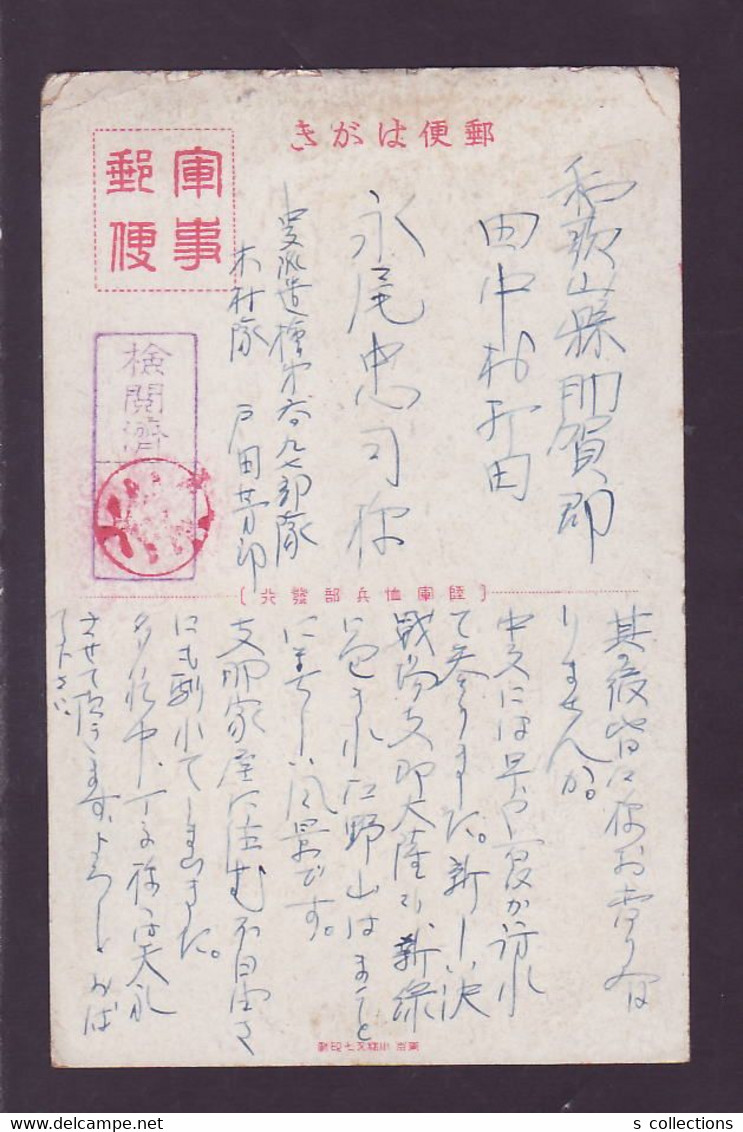 郵便はがき
軍事
郵便
検閲済
和歌山縣那賀郡
田中村打田
永尾忠司様
中支派遣檜第六八九七部隊
木村隊 戸田芳郎
(陸軍恤兵部發行)
其の後皆々様お変りは
りませんか。
中支には早や夏が訪れ
て参りました。新しい決
戦場支那大陸も新緑
に包まれ江野山はまこと
に美しい風景です。
支那家屋に住む不自由さ
にも馴れてしまいました。
多忙中、丁子様へは失礼
させて頂きます、よろしくお
下さい。
東京 小林又七印刷
s collections